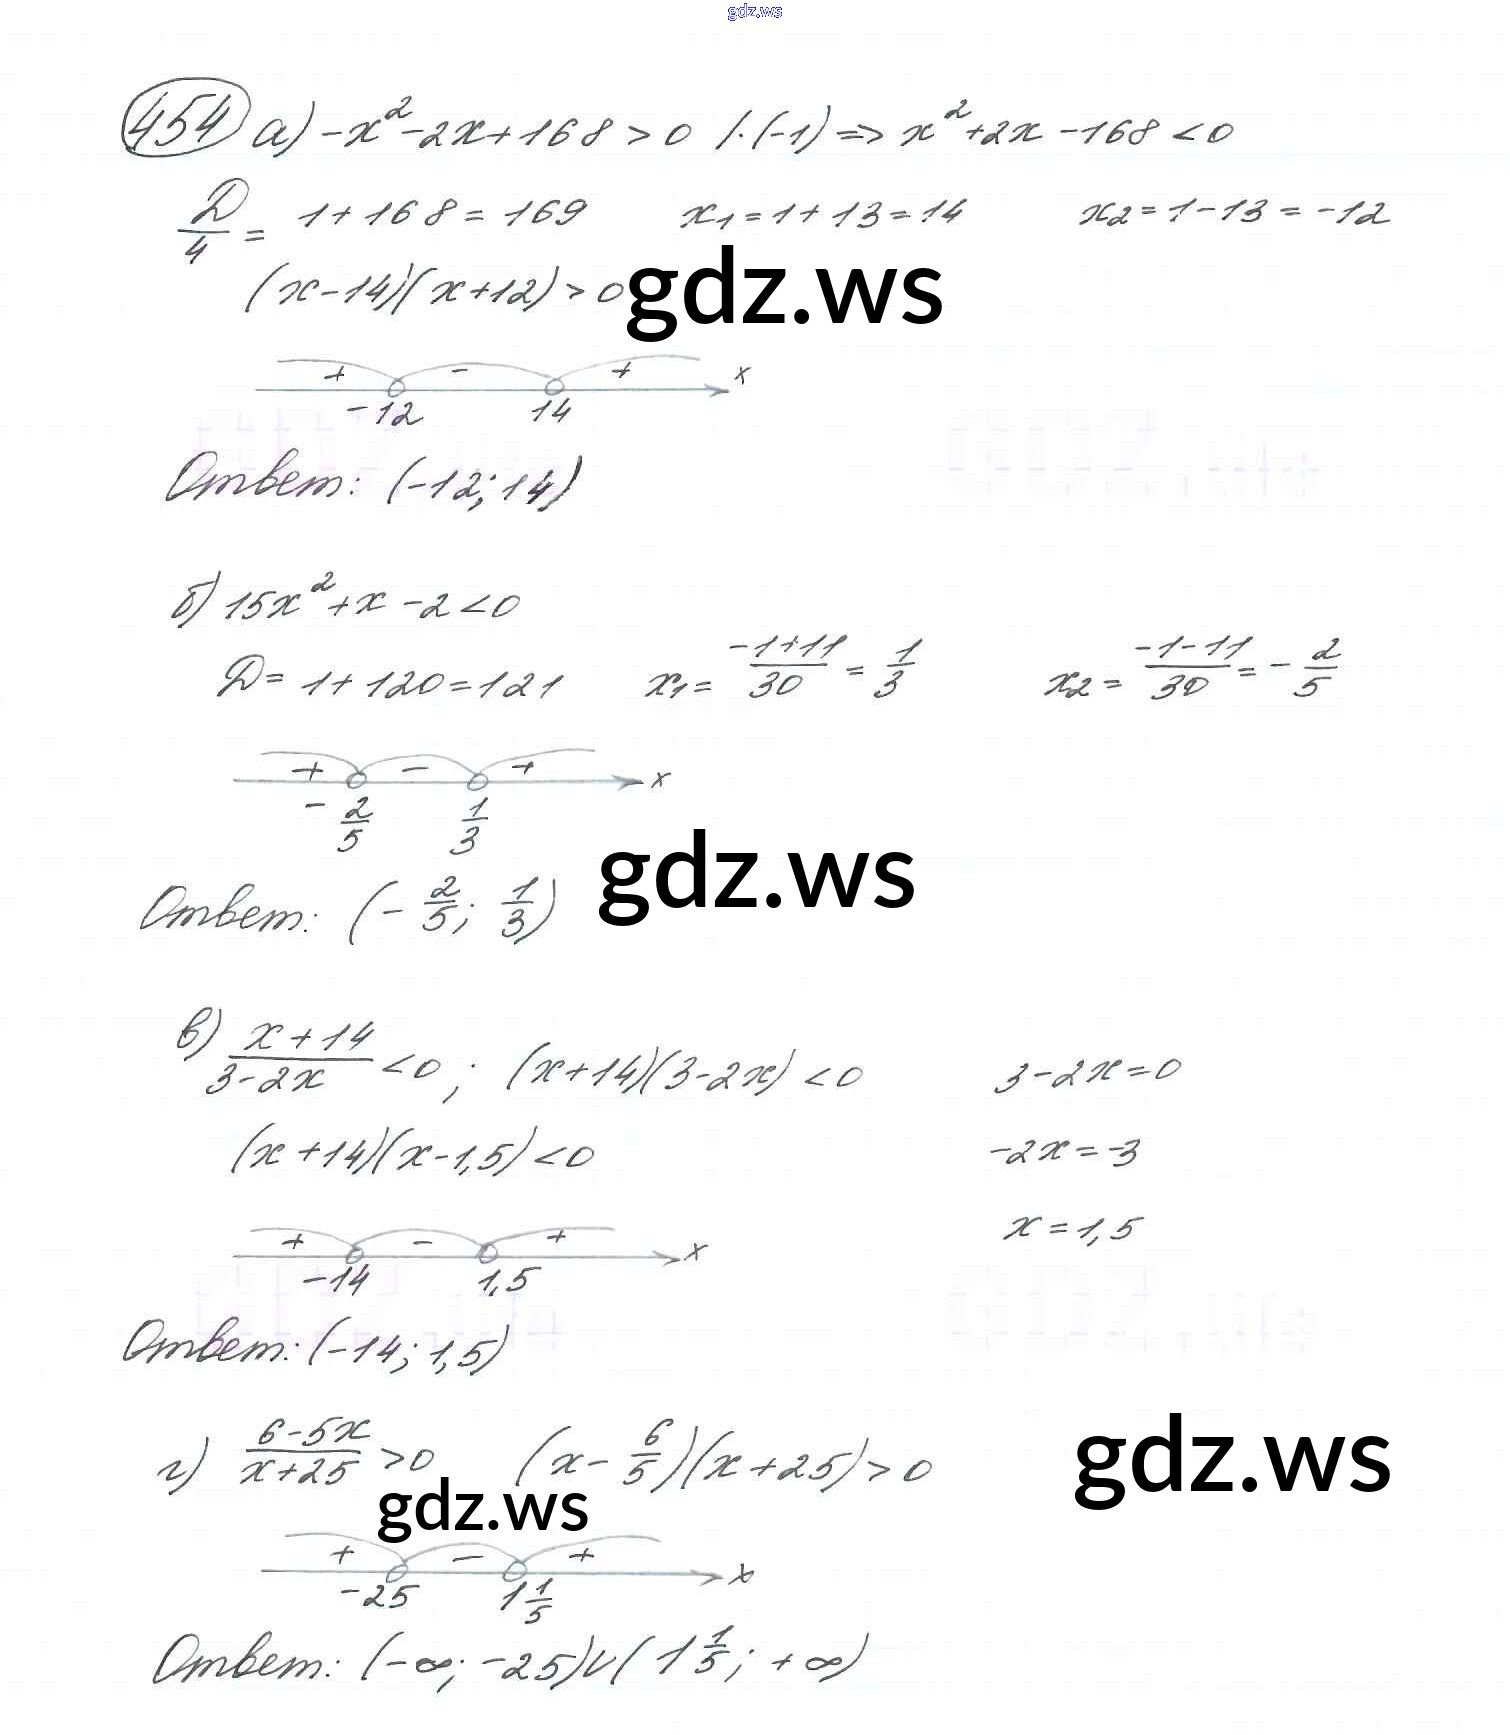 gdz.ws
454 а) -x²-2x+168>0 /·(-1) => x²+2x-168<0
D/4 = 1+168=169 x₁=1+13=14 x₂=1-13=-12
(x-14)(x+12)>0 gdz.ws
+ - + x
-12 14
Ответ: (-12; 14)
б) 15x²+x-2<0
D=1+120=121 x₁=(-1+11)/30=1/3 x₂=(-1-11)/30=-2/5
+ - + x
-2/5 1/3
gdz.ws
Ответ: (-2/5; 1/3)
в) (x+14)/(3-2x)<0; (x+14)(3-2x)<0 3-2x=0
(x+14)(x-1,5)<0 -2x=-3
x=1,5
+ - + x
-14 1,5
Ответ: (-14; 1,5)
г) (6-5x)/(x+25)>0 (x-6/5)(x+25)>0 gdz.ws
gdz.ws
+ - + x
-25 1 1/5
Ответ: (-∞; -25)∪(1 1/5; +∞)